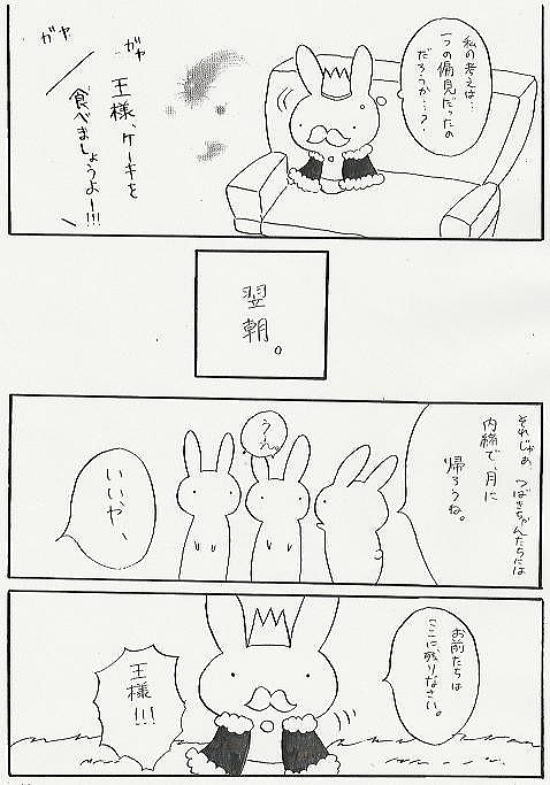 私の考えは…
一つの偏見だったの
だろうか…?
ガヤ
ガヤ
王様、ケーキを
食べましょうよー!!!
翌
朝。
それじゃあ、つばきちゃんたちには
内緒で、月に
帰ろうね。
うん。
いいや、
お前たちは
ここに残りなさい。
王様!!!